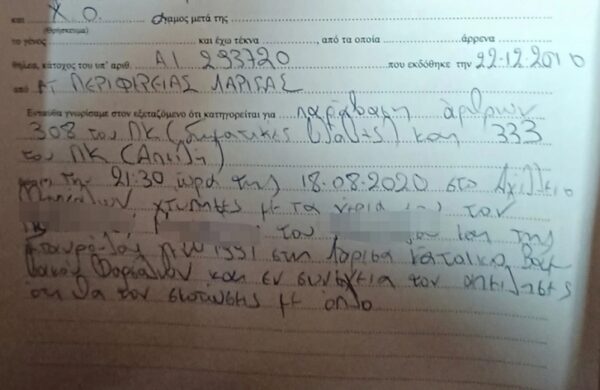 και Χ.Ο. άγαμος μετά της
(Θρήσκευμα)
το γένος και έχω τέκνα , από τα οποία άρρενα
θήλεα, κάτοχος του υπ' αριθ. ΑΙ 293720 που εκδόθηκε την 22-12-2010
από ΑΤ ΠΕΡΙΦΕΡΕΙΑΣ ΛΑΡΙΣΑΣ
Ενταύθα γνωρίσαμε στον εξεταζόμενο ότι κατηγορείται για παράβαση άρθρων
308 του ΠΚ (σωματικές βλάβες) και 333
του ΠΚ (Απειλή)
την 21:30 ώρα της 18.08.2020 στο Αχίλλειο
χτύπησες με τα χέρια του τον
του και της
1991 στη Λάρισα κάτοικο
Φαρσάλων και εν συνεχεία τον απείλησες
ότι θα τον σκοτώσεις με όπλο